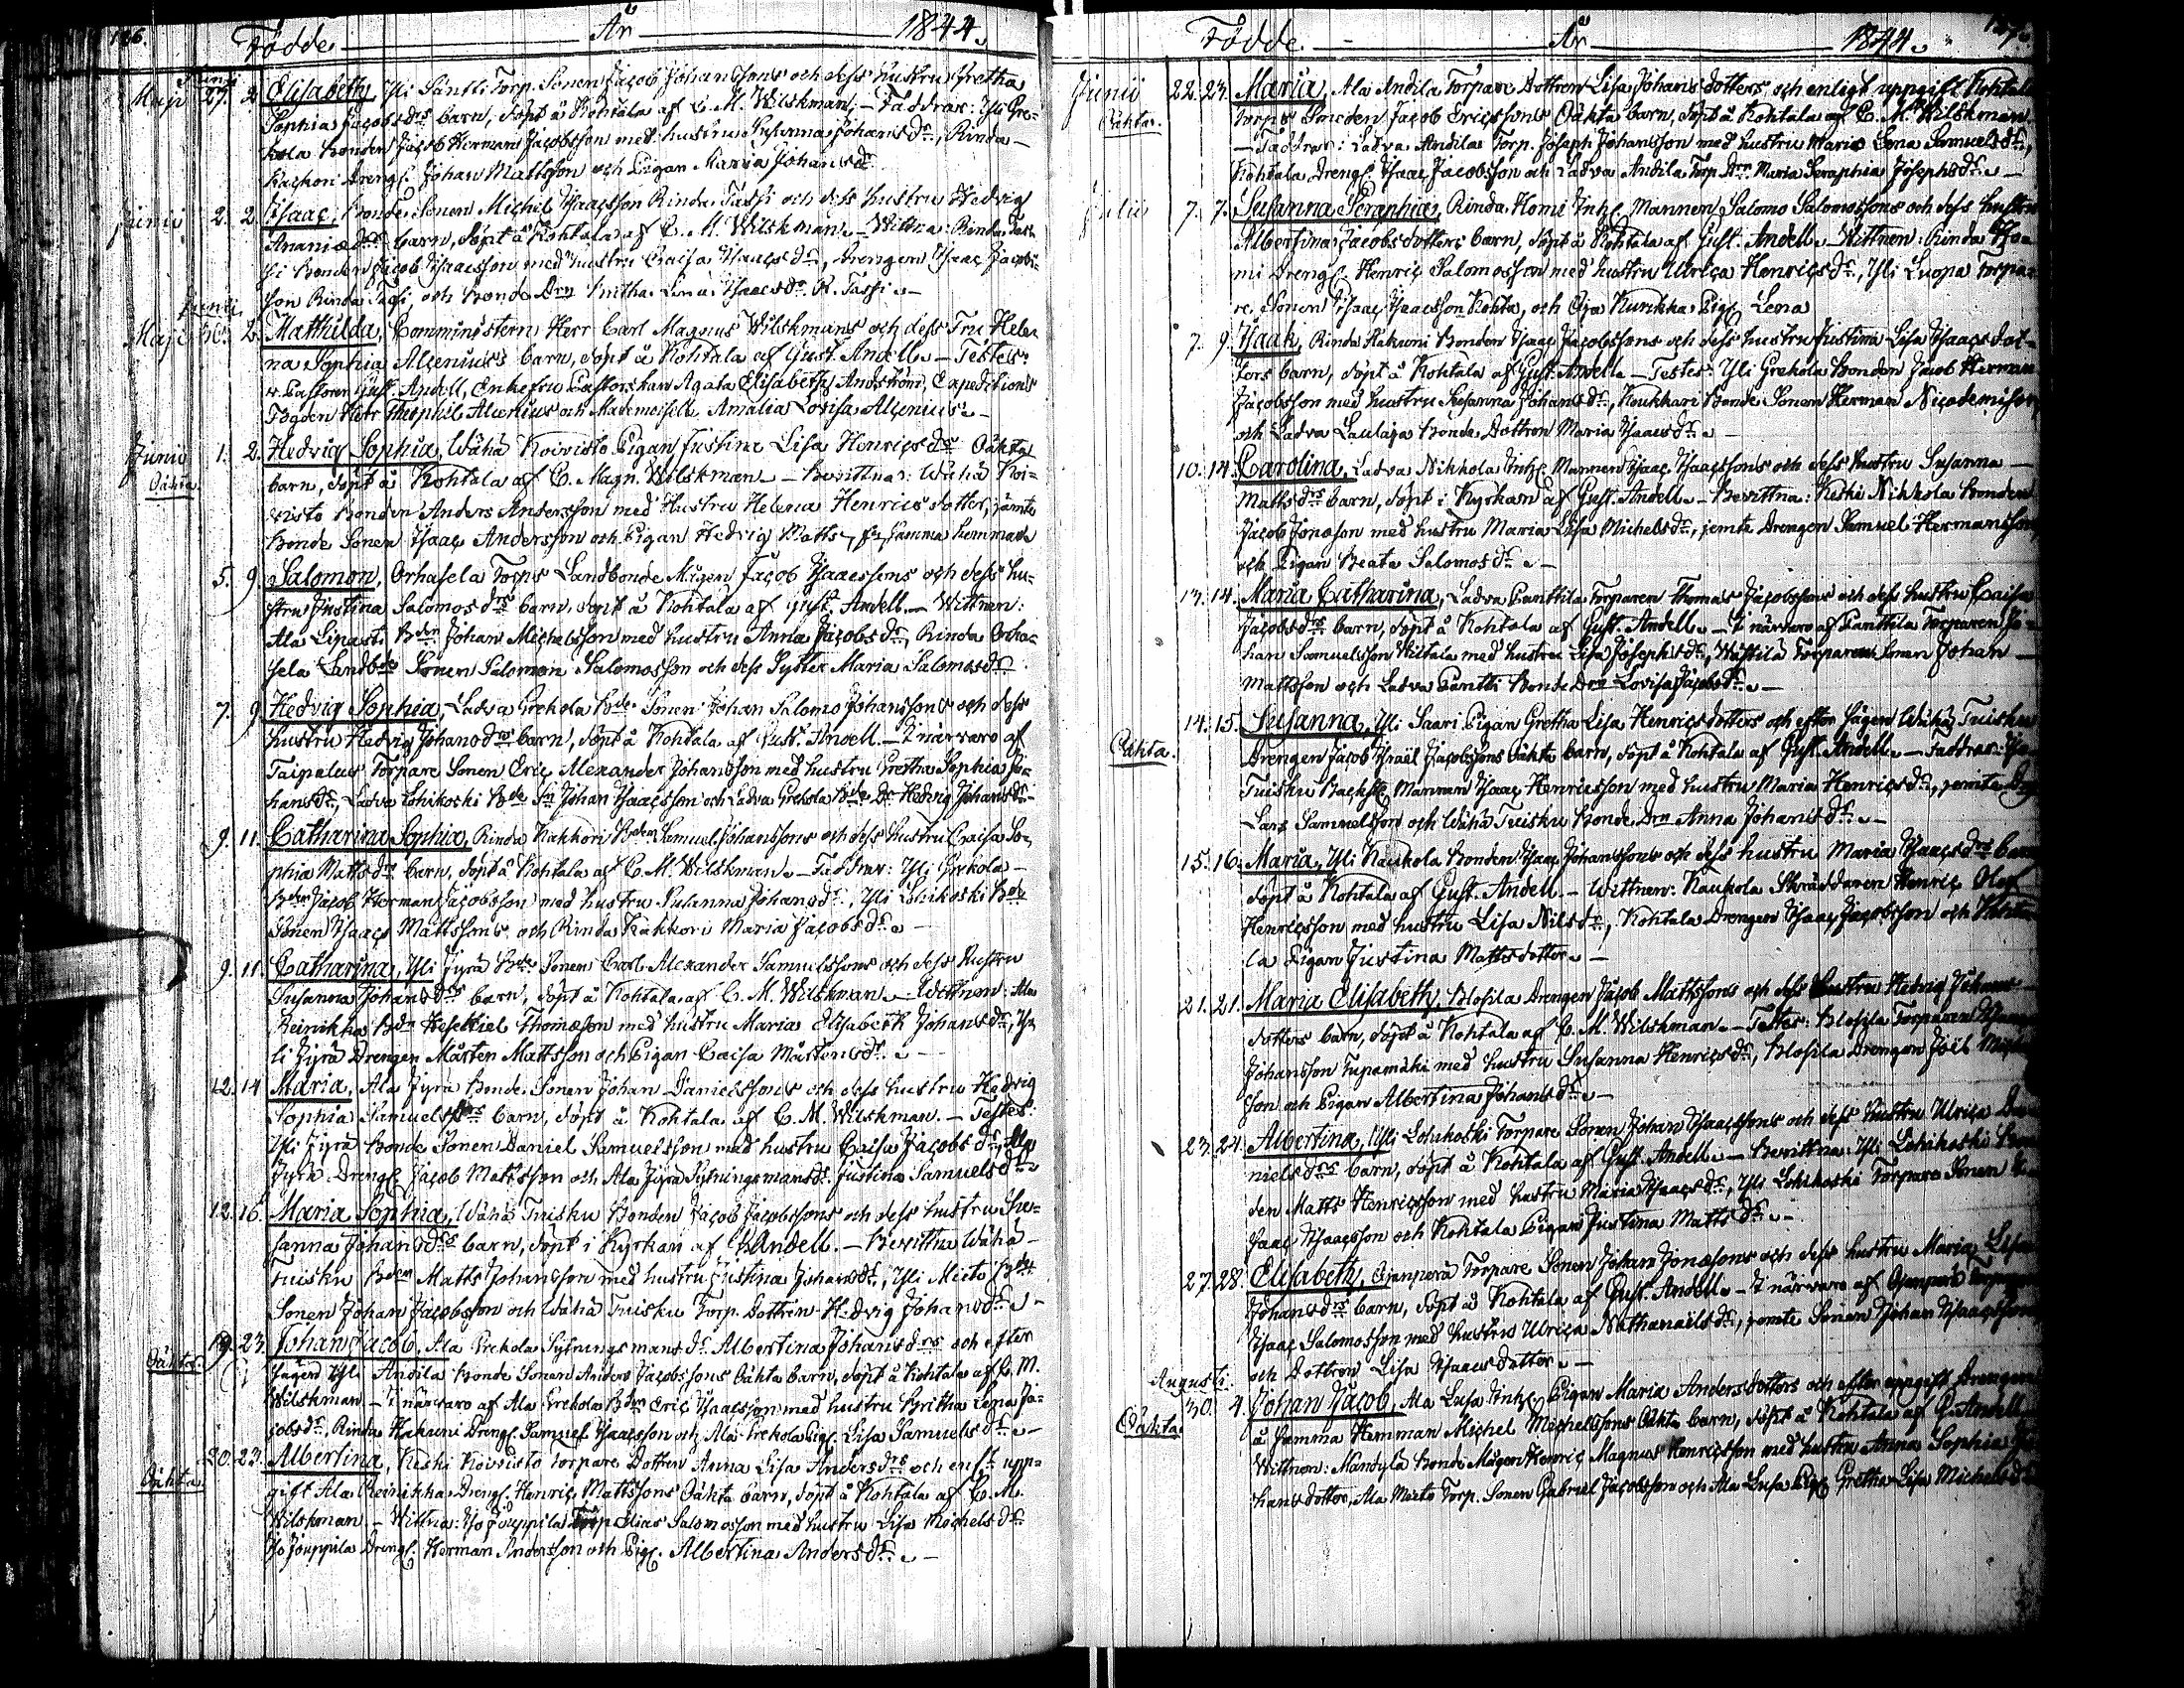 186.
Födde År 1844.
Junii
Maji 27. 2. Elisabeth, Yli Säntti Torp. Sonen Jacob Johanssons och dess hustru Gretha
Sophia Jacobsdrs barn, döpt å Kohtala af C. M. Wilskman. – Faddrar: Yli Gre-
kola bonden Jacob Herman Jacobsson med hustru Susanna Johansdr, Rinda –
Kackori Drengl. Johan Mattsson och Pigan Maria Johansdr
Junii. 2. 2. Isaac, Bonde Sonen Michel Isaacsson Rinda Tassi och dess hustru Hedvig
Ananiædrs barn, döpt å Kohtala af C. M. Wilskman. – Wittna: Rinda Tas-
si bonden Jacob Isaacsson med hustru Caisa Isaacsdr, Drengen Isaac Jacobs-
son Rinda Tassi, och bonde Drn Britha Lena Isaacsdr R. Tassi. –
Junii
Maji 30. 2. Mathilda, Comministern Herr Carl Magnus Wilskmans och dess Fru Hele-
na Sophia Alcenius's barn, döpt å Kohtala af Gust. Andell. – Testes:
v. Pastoren Gust. Andell, Enkefru Pastorskan Agata Elisabeth Andström, Expeditions
Fogden Herr Theophil Alcenius och Mademoiselle Amalia Lovisa Alcenius. –
Junii 1. 2. Hedvig Sophia, Wähä Koivisto Pigan Justina Lisa Henricsdrs Oäkta
Oäkta barn, döpt å Kohtala af C. Magn. Wilskman. – Bevittna: Wähä Koi-
visto Bonden Anders Andersson med Hustru Helena Henricsdotter, jämte
Bonde Sonen Isaac Andersson och Pigan Hedvig Matts fr samma hemman
5. 9. Salomon, Orhasela Torps Landbonde Mågen Jacob Isaacssons och dess hu-
stru Justina Salomosdrs barn, döpt å Kohtala af Gust. Andell. – Wittnen:
Ala Lipasti Bden Johan Michelsson med hustru Anna Jacobsdr, Rinda Orha-
sela Landbde Sonen Salomon Salomosson och dess Syster Maria Salomosdr
7. 9 Hedvig Sophia, Ladva Grekola Bde Sonen Johan Salomo Johanssons och dess
hustru Hedvig Johansdrs barn, döpt å Kohtala af Gust. Andell. – I närvaro af
Taipalus Torpare Sonen Eric Alexander Johansson med hustru Gretha Sophia Jo-
hansdr, Ladva Lohikoski Bde Sn Johan Isaacsson och Ladva Grekola Bde Dr Hedvig Johansdr –
9. 11. Catharina Sophia, Rinda Kakkori Bden Samuel Johanssons och dess hustru Caisa So-
phia Mattsdrs barn, döpt å Kohtala af C. M. Wilskman. – Faddrar: Yli Grekola –
Bden Jacob Herman Jacobsson med hustru Susanna Johansdr, Yli Lohikoski Bde
Sonen Isaac Mattssons och Rinda Kakkori Maria Jacobsdr. –
9. 11. Catharina, Yli Jyrä Bde Sonen Carl Alexander Samuelssons och dess Hustru
Susanna Johansdrs barn, döpt å Kohtala af C. M. Wilskman. – Wittnen: Ala
Reinikka Bdn Hesekiel Thomæson med hustru Maria Elisabeth Johansdr, Y-
li Jyrä Drengen Mårten Mattsson och Pigan Caisa Mårtensdr. –
12. 14 Maria, Ala Jyrä Bonde Sonen Johan Danielssons och dess hustru Hedvig
Sophia Samuelsdrs barn, döpt å Kohtala af C. M. Wilskman. – Testes:
Yli Jyrä Bonde Sonen Daniel Samuelsson med hustru Caisa Jacobsdr, Ala
Jyrä Drengl. Jacob Mattsson och Ala Jyrä Sytningsmansdr Justina Samuelsdr.
12. 16. Maria Sophia, Wähä Tuisku Bonden Jacob Jacobssons och dess hustru Su-
sanna Johansdrs barn, döpt i Kyrkan af G Andell. – Bevittna Wähä –
Tuisku Bden Matts Johansson med hustru Justina Johansdr, Yli Mieto Bde
Sonen Johan Jacobsson och Wähä Tuisku Torp. Dottren Hedvig Johansdr. –
19. 23. Johan Jacob, Ala Grekola Sytningsmansdr Albertina Johansdrs och efter
Oäkta. sägen Yli Andila Bonde Sonen Anders Jacobssons Oäkta barn, döpt å Kohtala af C. M.
Wilskman. – I närvaro af Ala Grekola Bden Eric Isaacsson med hustru Britha Lena Ja-
cobsdr, Rinda Hakuni Drengl. Samuel Isaacsson och Ala Grekola Pigl. Lisa Samuelsdr. –
20. 23. Albertina, Keski Koivisto Torpare Dottren Anna Lisa Andersdrs och enlt upp-
Oäkta. gift Ala Reinikka Drengl. Henric Mattssons Oäkta barn, döpt å Kohtala af C. M.
Wilskman. – Wittna: Iso Jouppila Torp Elias Salomosson med hustru Lisa Michelsdr
Iso Jouppila Drengl. Herman Andersson och Pigl. Albertina Andersdr. –
187.
Födde. – År 1844.
Junii 22. 23. Maria, Ala Andila Torpare Dottren Lisa Johansdotters och enligt uppgift Kohtala
Oäkta. torps Smeden Jacob Ericssons Oäkta barn, döpt å Kohtala af C. M. Wilskman
– Faddrar: Ladva Andila Torp. Joseph Johansson med hustru Maria Lena Samuelsdr,
Kohtala Drengl. Isaac Jacobsson och Ladva Andila Torp Drn Maria Seraphia Josephsdr. –
Julii 7. 7. Susanna Seraphia, Rinda Homi Inhl Mannen Salomo Salomossons och dess hustru
Albertina Jacobsdotters barn, döpt å Kohtala af Gust. Andell. – Wittnen: Rinda Ho-
mi Drengl. Henric Salomosson med hustru Ulrica Henricsdr, Yli Luopa Torpa-
re Sonen Isaac Isaacsson Kohta, och Oja Kurikka Pigl Lena
7. 9. Isaak, Rinda Hakuni Bonden Isaac Jacobssons och dess hustru Justina Lisa Isaacsdot-
ters barn, döpt å Kohtala af Gust. Andell. – Testes: Yli Grekola Bonden Jacob Herman
Jacobsson med hustru Susanna Johansdr, Koukkari Bonde Sonen Herman Nicodemisson
och Ladva Laulaja Bonde Dottren Maria Isaacsdr. –
10. 14. Carolina, Ladva Nikkola Inhl Mannen Isaac Isaacssons och dess hustru Susanna –
Mattsdrs barn, döpt i Kyrkan af Gust. Andell. – Bevittna: Keski Nikkola Bonden
Jacob Jonæson med hustru Maria Lisa Michelsdr, jemte Drengen Samuel Hermansson
och Pigan Beata Salomosdr. –
13. 14. Maria Catharina, Ladva Panttila Torparen Thomas Jacobssons och dess hustru Caisa
Jacobsdrs barn, döpt å Kohtala af Gust. Andell. – I närvaro af Panttila Torparen Jo-
han Samuelsson Wiltala med hustru Lisa Josephsdr, Wästilä Torparen Sonen Johan –
Mattsson och Ladva Pantti Bonde Drn Lovisa Jacobsdr. –
14. 15. Susanna, Yli Saari Pigan Gretha Lisa Henricsdotters och efter sägen Wähä Tuisku
Oäkta. Drengen Jacob Israël Jacobssons Oäkta barn, döpt å Kohtala af Gust. Andell. – Faddrar:
Tuisku Backstl Mannen Isaac Henricsson med hustru Maria Henricsdr, jemte
Lars Samuelsson och Wähä Tuisku Bonde Drn Anna Johansdr. –
15. 16. Maria, Yli Kaukola Bonden Isaac Johanssons och dess hustru Maria Isaacsdrs barn
döpt å Kohtala af Gust. Andell. – Wittnen: Kaukola Skräddaren Henric Olof
Henricsson med hustru Lisa Nilsdr, Kohtala Drengen Isaac Jacobsson och Kohta-
la Pigan Justina Mattsdotter. –
21. 21. Maria Elisabeth, Blofila Drengen Jacob Mattssons och dess hustru Hedvig Johans-
dotters barn, döpt å Kohtala af C. M. Wilskman. – Testes: Blofila Torparen
Johansson Tupamäki med hustru Susanna Henricsdr, Blofila Drengen Joël
son och Pigan Albertina Johansdr. –
23. 24. Albertina, Yli Lohikoski Torpare Sonen Johan Isaacssons och dess hustru Ulrica Da-
nielsdrs barn, döpt å Kohtala af Gust. Andell. – Bevittna: Yli Lohikoski Bon-
den Matts Henricsson med hustru Maria Isaacsdr, Yli Lohikoski Torpare Sonen I-
saac Isaacsson och Kohtala Pigan Justina Mattsdr. –
27. 28. Elisabeth, Ojanperä Torpare Sonen Johan Jonæsons och dess hustru Maria Lisa
Johansdrs barn, döpt å Kohtala af Gust. Andell. – I närvaro af Ojanperä Torparen
Isaac Salomosson med hustru Ulrica Nathanaëlsdr, jemte Sonen Johan Isaacsson
och Dottren Lisa Isaacsdotter. –
Augusti.
30. 4. Johan Jacob, Ala Lusa Inhl Pigan Maria Andersdotters och efter uppgift Drengen
Oäkta. å samma Hemman Michel Michelssons Oäkta barn, döpt å Kohtala af G. Andell
Wittnen: Mandyla Bonde Mågen Henric Magnus Henricsson med hustru Anna Sophia Jo-
hansdotter, Ala Mieto Torp. Sonen Gabriel Jacobsson och Ala Lusa Pigl Gretha Lisa Michelsdr